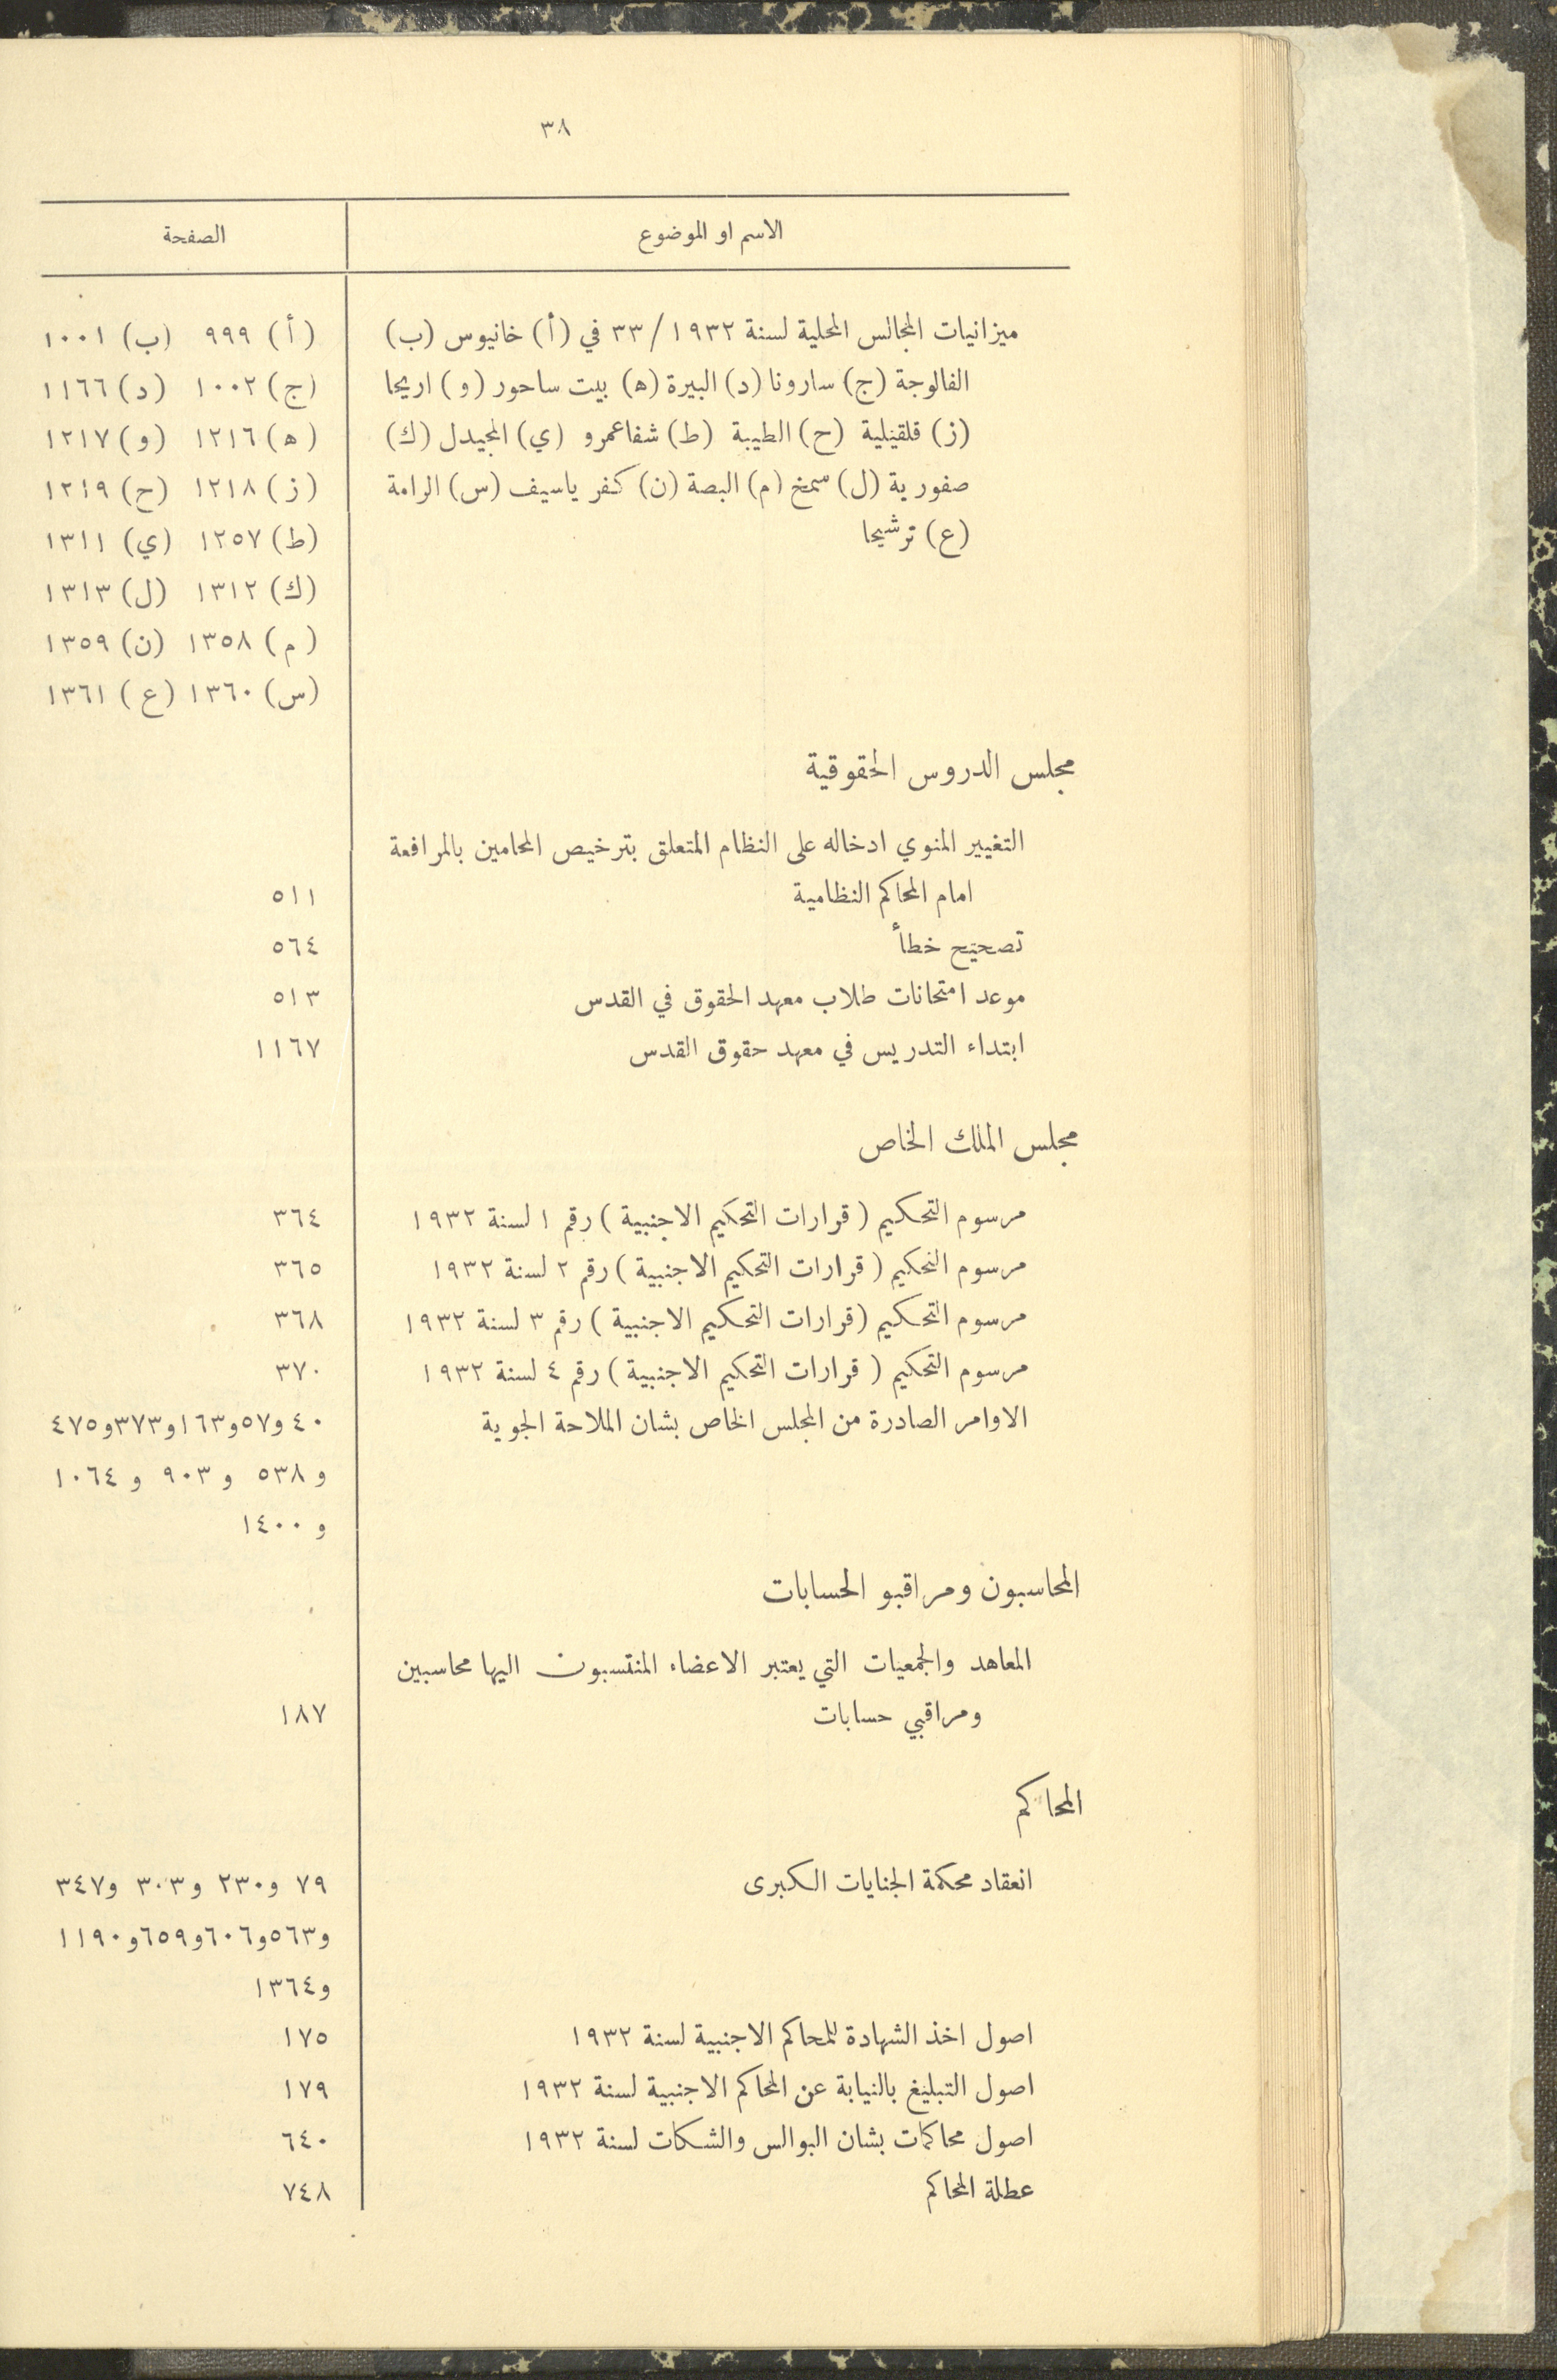 ٣٨
الاسم او الموضوع الصفحة
ميزانيات المجالس المحلية لسنة ١٩٣٢/ ٣٣ في (أ) خانيوس (ب) (أ) ٩٩٩ (ب) ١٠٠١
الفالوجة (ج) سارونا (د) البيرة (ه) بيت ساحور (و) اريحا (ج) ١٠٠٢ (د) ١١٦٦
(ز) قلقيلية (ح) الطيبة (ط) شفاعمرو (ي) المجيدل (ك) (ه) ١٢١٦ (و) ١٢١٧
صفورية (ل) سمخ (م) البصة (ن) كفر ياسيف (س) الرامة (ز) ١٢١٨ (ح) ١٢١٩
(ع) ترشيحا (ط) ١٢٥٧ (ي) ١٣١١
(ك) ١٣١٢ (ل) ١٣١٣
(م) ١٣٥٨ (ن) ١٣٥٩
(س) ١٣٦٠ (ع) ١٣٦١
مجلس الدروس الحقوقية
التغيير المنوي ادخاله على النظام المتعلق بترخيص المحامين بالمرافعة
امام المحاكم النظامية ٥١١
تصحيح خطأ ٥٦٤
موعد امتحانات طلاب معهد الحقوق في القدس ٥١٣
ابتداء التدريس في معهد حقوق القدس ١١٦٧
مجلس الملك الخاص
مرسوم التحكيم (قرارات التحكيم الاجنبية) رقم ١ لسنة ١٩٣٢ ٣٦٤
مرسوم التحكيم (قرارات التحكيم الاجنبية) رقم ٢ لسنة ١٩٣٢ ٣٦٥
مرسوم التحكيم (قرارات التحكيم الاجنبية) رقم ٣ لسنة ١٩٣٢ ٣٦٨
مرسوم التحكيم (قرارات التحكيم الاجنبية) رقم ٤ لسنة ١٩٣٢ ٣٧٠
الاوامر الصادرة من المجلس الخاص بشان الملاحة الجوية ٤٠ و٥٧ و١٦٣ و٣٧٣ و٤٧٥
و ٥٣٨ و ٩٠٣ و ١٠٦٤
و ١٤٠٠
المحاسبون ومراقبو الحسابات
المعاهد والجمعيات التي يعتبر الاعضاء المنتسبون اليها محاسبين
ومراقبي حسابات ١٨٧
المحاكم
انعقاد محكمة الجنايات الكبرى ٧٩ و٢٣٠ و٣٠٣ و٣٤٧
و٥٦٣ و٦٠٦ و٦٥٩ و١١٩٠
و١٣٦٤
اصول اخذ الشهادة للمحاكم الاجنبية لسنة ١٩٣٢ ١٧٥
اصول التبليغ بالنيابة عن المحاكم الاجنبية لسنة ١٩٣٢ ١٧٩
اصول محاكمات بشان البوالس والشكات لسنة ١٩٣٢ ٦٤٠
عطلة المحاكم ٧٤٨